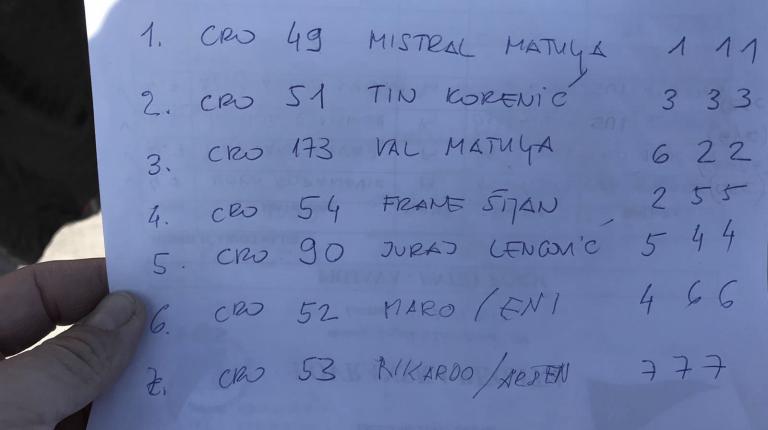 1. CRO 49 MISTRAL MATULJA 1 1 1
2. CRO 51 TIN KORENIĆ 3 3 3
3. CRO 173 VAL MATULJA 6 2 2
4. CRO 54 FRANE ŠIJAN 2 5 5
5. CRO 90 JURAJ LENGOVIĆ 5 4 4
6. CRO 52 MARO/ENI 4 6 6
7. CRO 53 RIKARDO/ARSEN 7 7 7